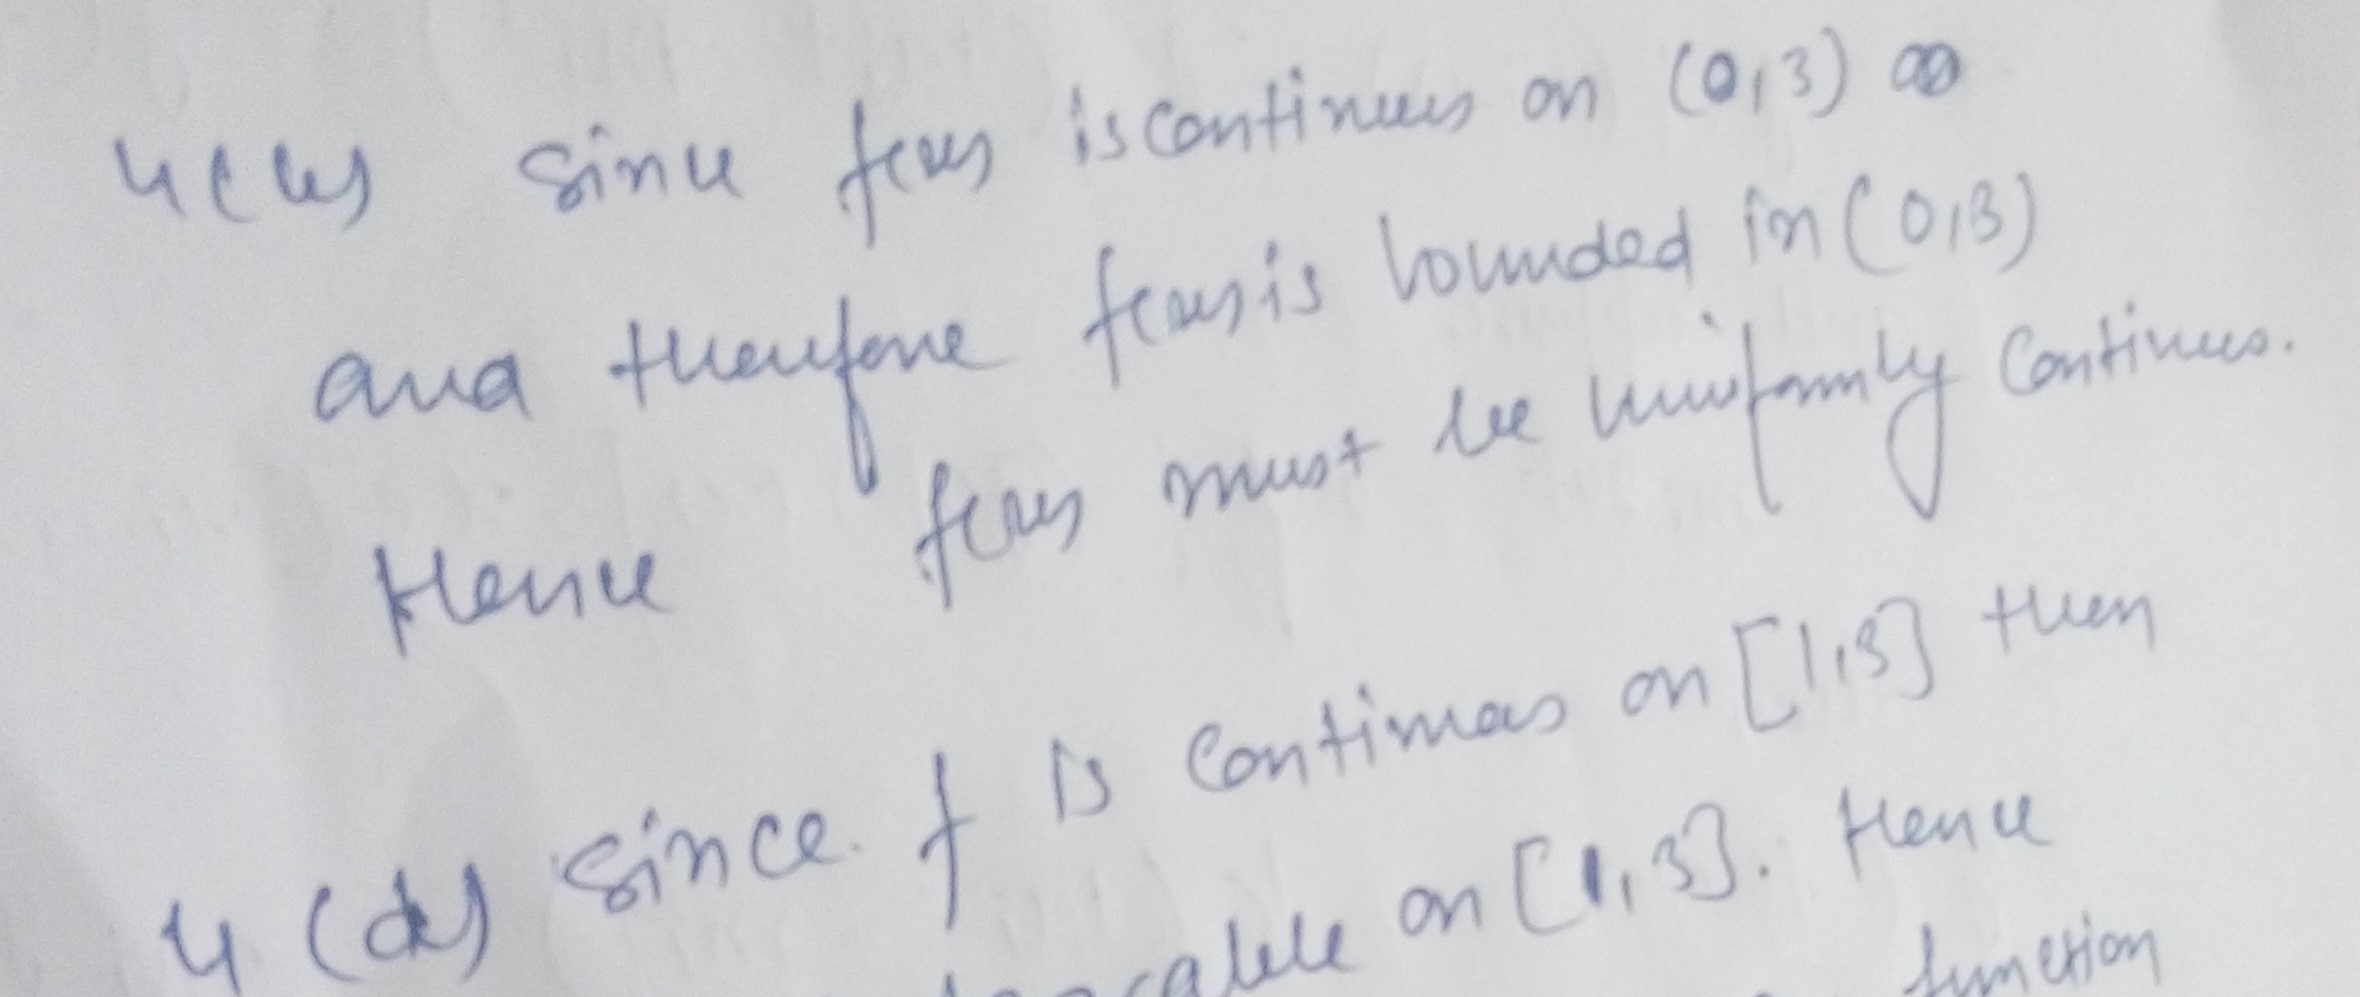 Since f(x) is continues on (0,3)
and therefore f(x) is bounded in (0,3)
Hence f(x) must be uniformly continues.
4 (d) Since f is continuas on [1,3] then
on [1,3]. Hence
function